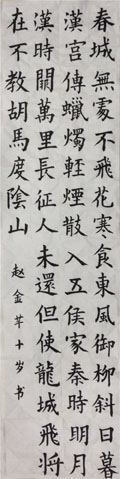 春城無處不飛花寒食東風御柳斜日暮
漢宮傳蠟燭輕煙散入五侯家秦時明月
漢時關萬里長征人未還但使龍城飛将
在不教胡馬度陰山
赵金芊十岁书